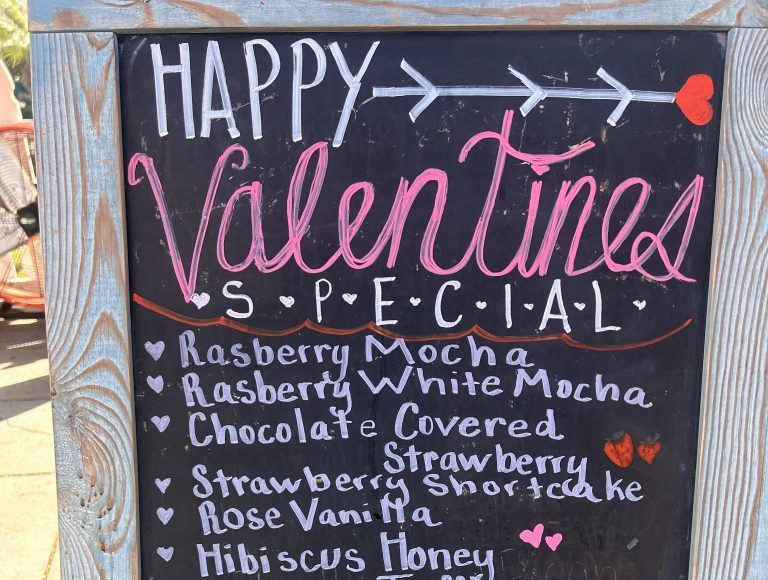 HAPPY
Valentines
SPECIAL
Rasberry Mocha
Rasberry White Mocha
Chocolate Covered
Strawberry
Strawberry Shortcake
Rose Vanilla
Hibiscus Honey